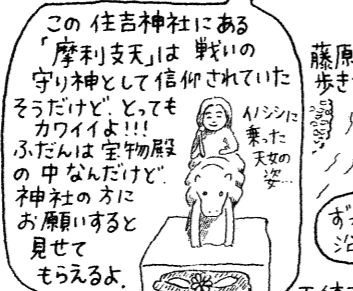 この住吉神社にある
「摩利支天」は戦いの
守り神として信仰されていた
そうだけど、とっても
カワイイよ!!!
ふだんは宝物殿
の中なんだけど、
神社の方に
お願いすると
見せて
もらえるよ。
イノシシに
乗った
天女の
姿…
藤原
歩き